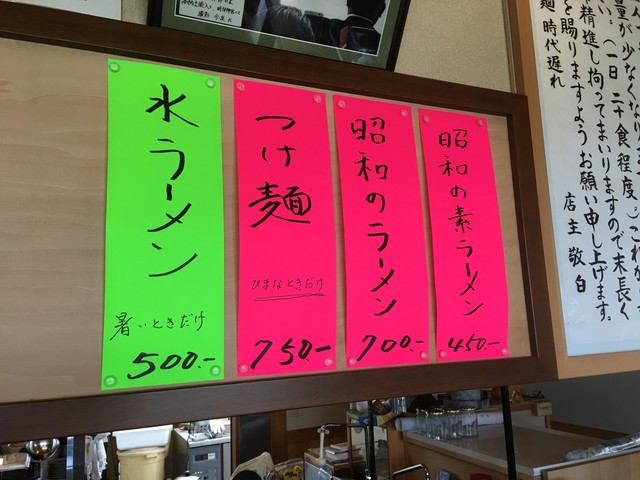 昭和の素ラーメン
450.-
昭和のラーメン
700.-
つけ麺
ひまなときだけ
750.-
水ラーメン
暑いときだけ
500.-
(一日二十食程度。)
精進し拘ってまいりますので末長く
を賜りますようお願い申し上げます。
店主敬白
麺時代遅れ